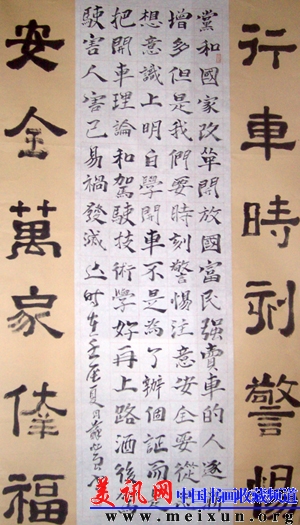 行車時刻警惕
黨和國家改革開放國富民强賣車的人逐
增多但是我們要時刻警惕注意安全要從
想意識上明白學開車不是为了辦個証而是
把開車理論和駕駛技術學好再上路酒後
駛害人害己易禍發
安全萬家倖福
美讯网 中国书画收藏频道
www.meixun.org